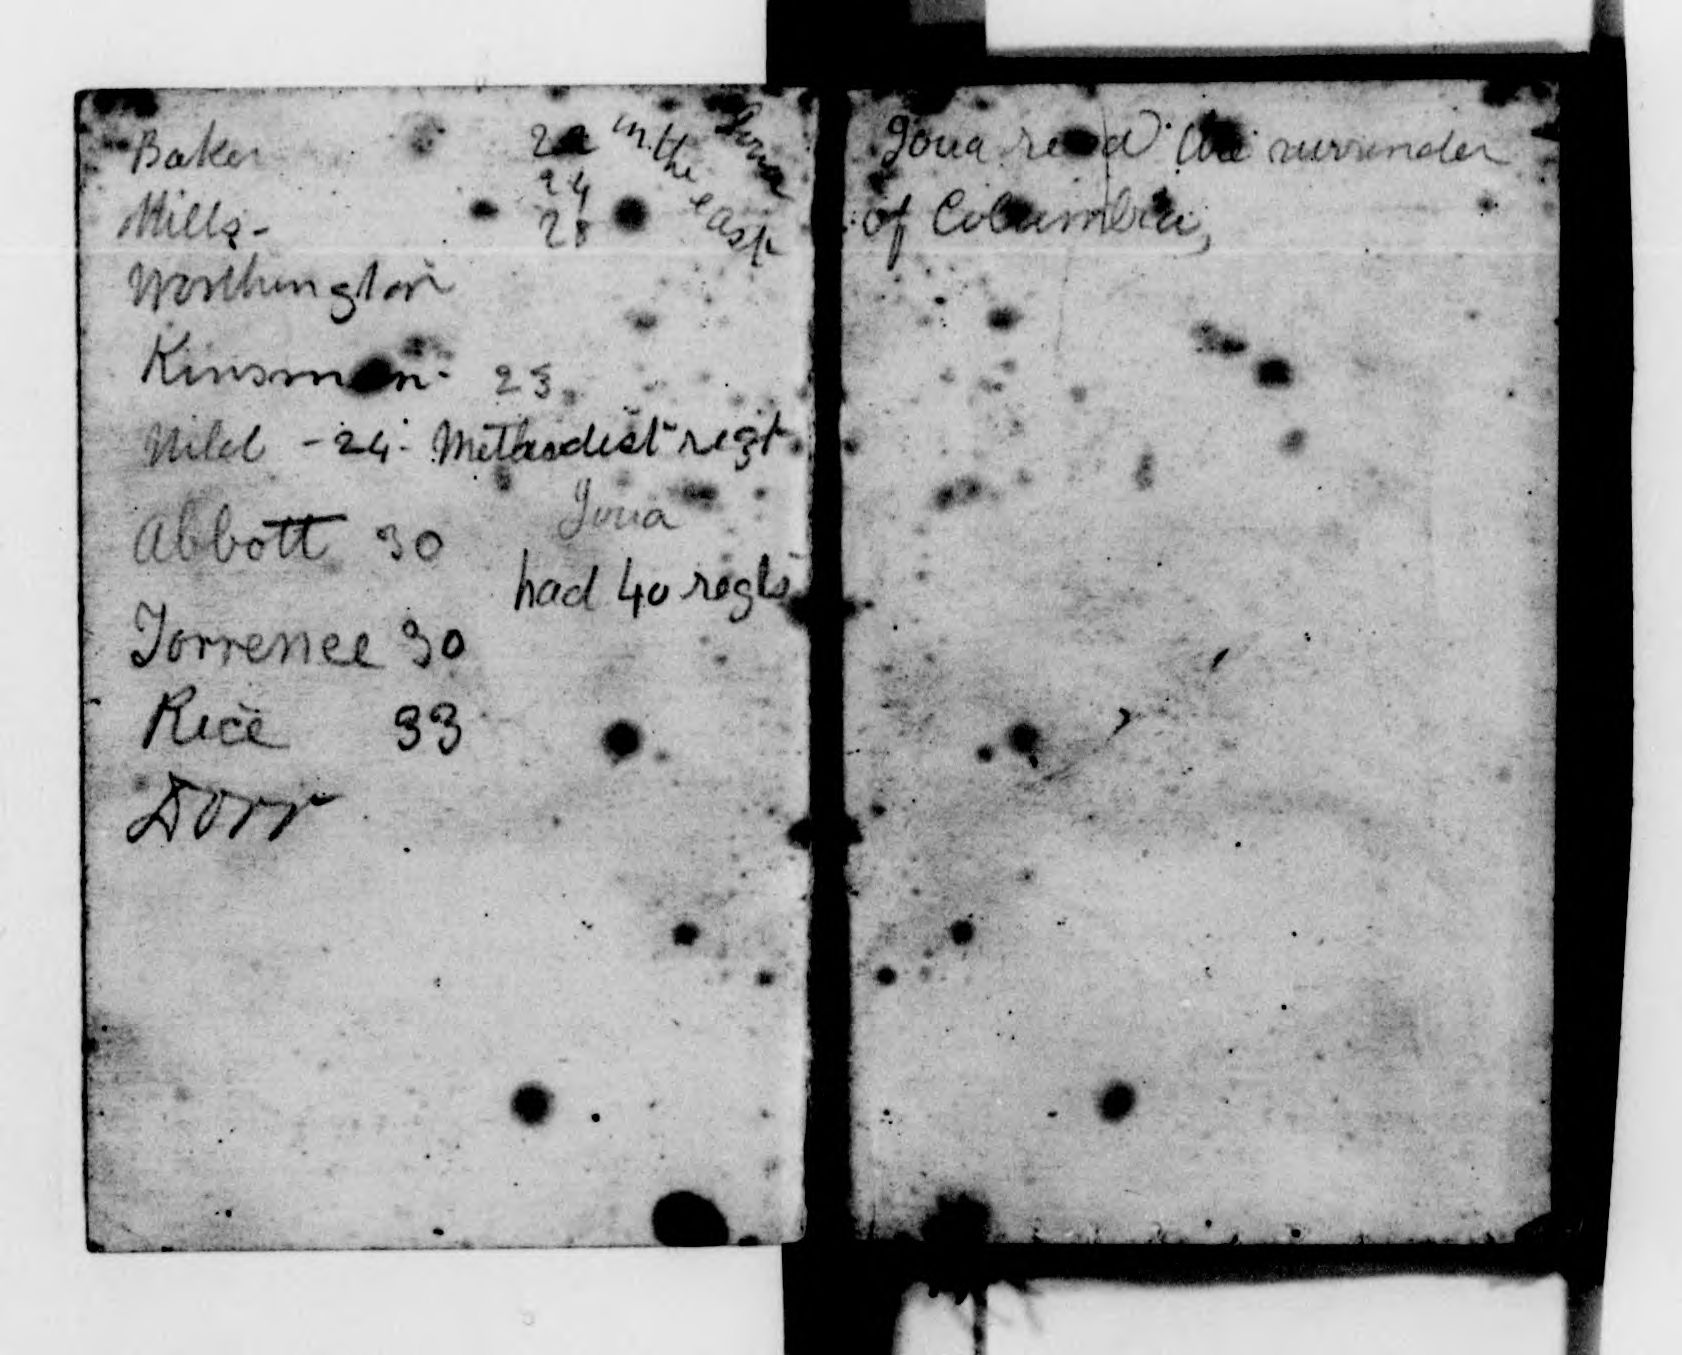 Baker 22
24
Mills - 28
in the east
Iowa
Worthington
Kinsman - 23
Wild - 24 - Methodist regt
Abbott 30 Iowa
had 40 regts
Torrence 30
Rice 33
Dorr
Iowa rec'd the surrender
of Columbia,